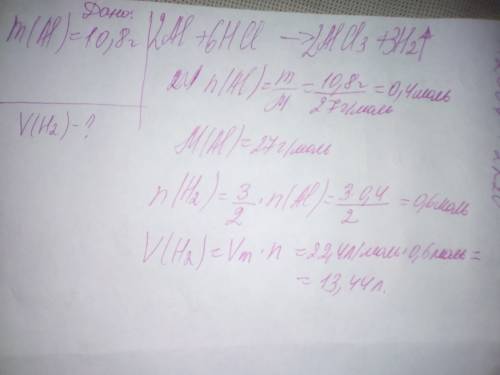 Дано:
m(Al)=10,8г
V(H₂)-?
2Al+6HCl → 2AlCl₃+3H₂↑
n(Al)=m/M=10,8г/27г/моль=0,4моль
M(Al)=27г/моль
n(H₂)=3/2·n(Al)=3·0,4/2=0,6моль
V(H₂)=Vm·n=22,4л/моль·0,6моль=
=13,44л.